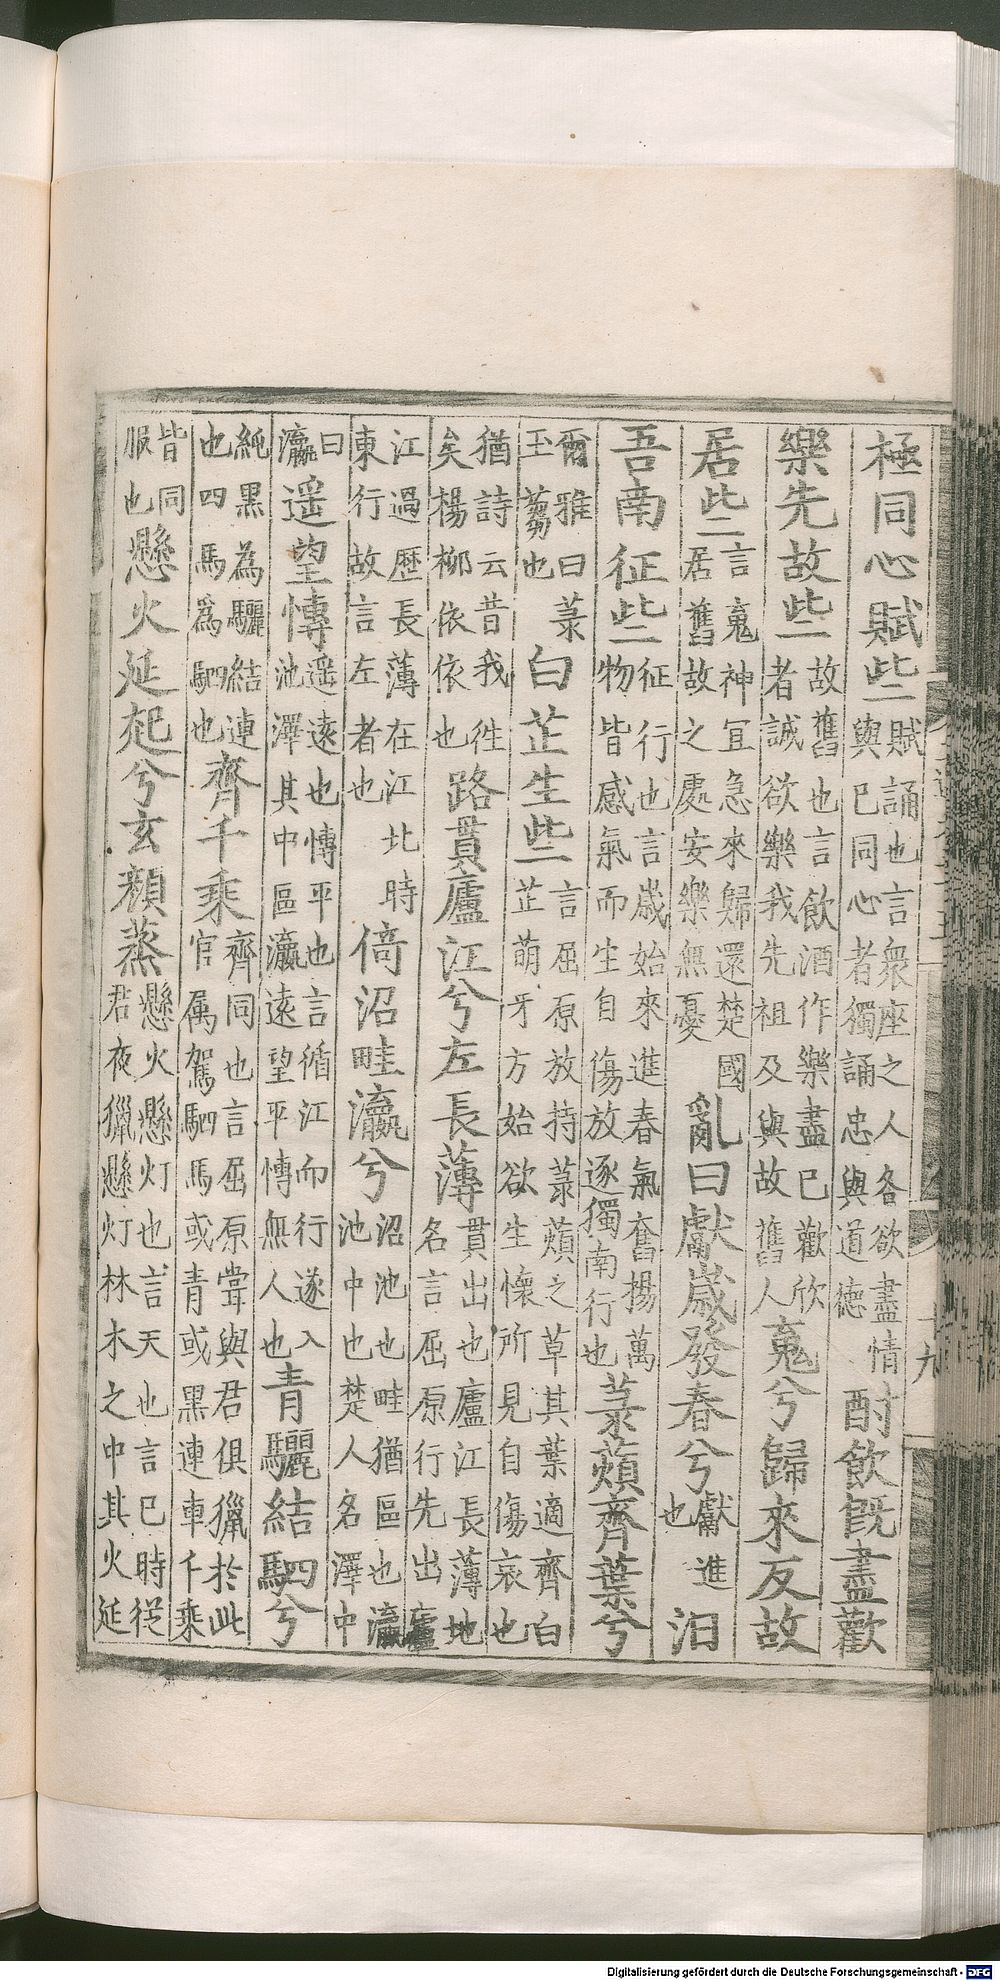 極同心賦些賦誦也言衆座之人各欲盡情與巳同心者獨誦忠與道德酎飲旣盡歡
樂先故些故舊也言飲酒作樂盡巳歡欣者誠欲樂我先祖及與故舊人䰟兮歸來反故
居些言䰟神冝急來歸還楚國居舊故之處安樂無憂亂曰獻歲發春兮獻進也汩
吾南征些征行也言歲始來進春氣奮揚萬物皆感氣而生自傷放逐獨南行也菉蘋齊葉兮
爾雅曰菉王蒭也白芷生些言屈原放持菉蘋之草其葉適齊白芷萌牙方始欲生懷所見自傷哀也
猶詩云昔我徃矣楊柳依依也路貫廬江兮左長薄貫出也廬江長薄地名言屈原行先出廬
江過歷長薄在江北時東行故言左者也倚沼畦瀛兮沼池也畦猶區也瀛池中也楚人名澤中
曰瀛遥望愽遥逺也愽平也言循江而行遂入池澤其中區瀛遠望平愽無人也青驪結駟兮
純黑為驪結連也四馬爲駟也齊千乘齊同也言屈原甞與君俱獵於此官属駕駟馬或青或黑連車千乘
皆同服也懸火延起兮玄顏蒸懸火懸灯也言天也言已時從君夜獵懸灯林木之中其火延
十九
Digitalisierung gefördert durch die Deutsche Forschungsgemeinschaft - DFG